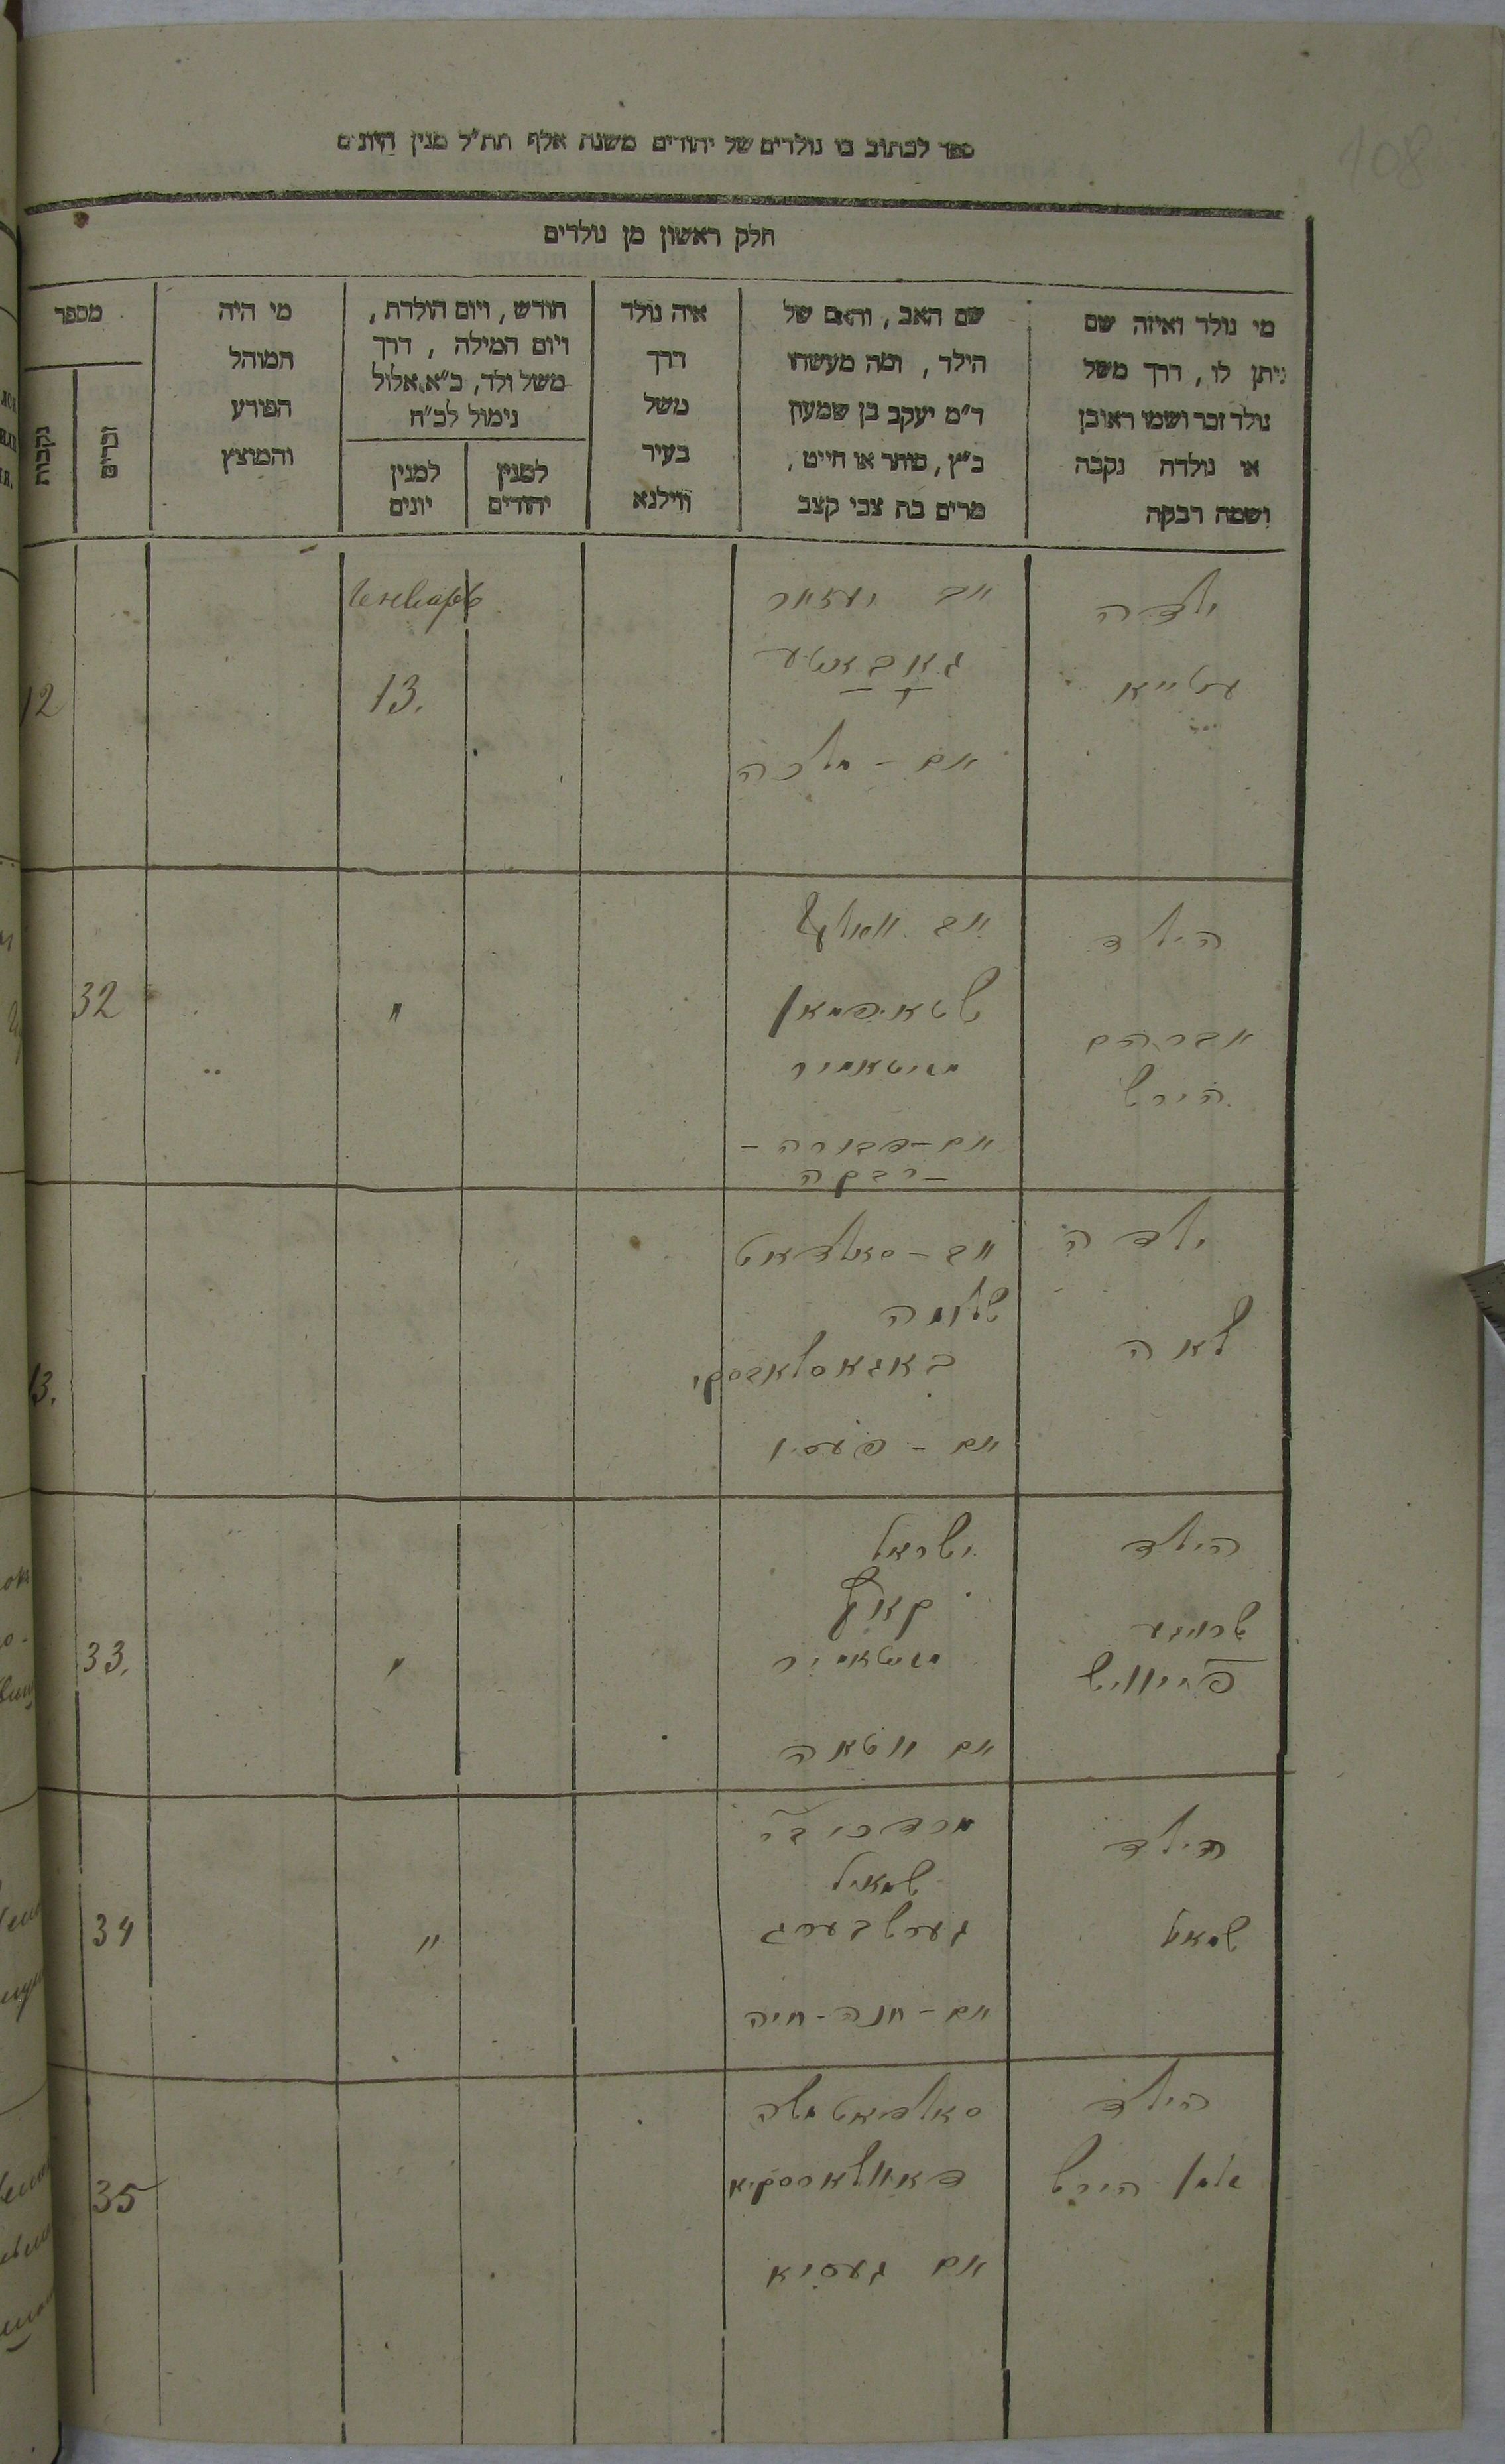 108
ספר לכתוב בו נולדים של יהודים משנת אלף תת"ל מנין היונים
חלק ראשון מן נולדים
מי נולד ואיזה שם
ניתן לו, דרך משל
נולד זכר ושמו ראובן
או נולדה נקבה
ושמה רבקה
שם האב, והאם של
הילד, ומה מעשהו
ד"מ יעקב בן שמעון
כ"ץ, סוחר או חייט,
מרים בת צבי קצב
איה נולד
דרך
משל
בעיר
ווילנא
חודש, ויום הולדת,
ויום המילה, דרך
משל ולד, כ"א אלול
נימול לכ"ח
למנין
יהודים
למנין
יונים
מי היה
המוהל
הפורע
והמוצץ
מספר
זכרים
נקבות
ילדה
אב
אם - מלכה
Январь
13.
12
הילד
אברהם
הירש
אב
אם - דבורה -
- רבקה
"
32
ילדה
לאה
אב - סאלדאט
שלמה
באגאסלאבסקי
אם - פעסי
13.
הילד
שרגא
פייוויש
ישראל
אם
"
33.
הילד
שמואל
מרדכי בר
שמואל
גערשבערג
אם - חנה - חיה
"
34
הילד
זלמן הירש
סאלדאט משה
אם געסיא
35